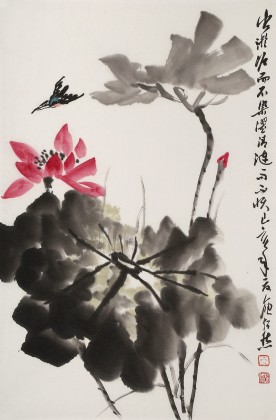 出淤泥而不染濯清漣而不妖己亥年